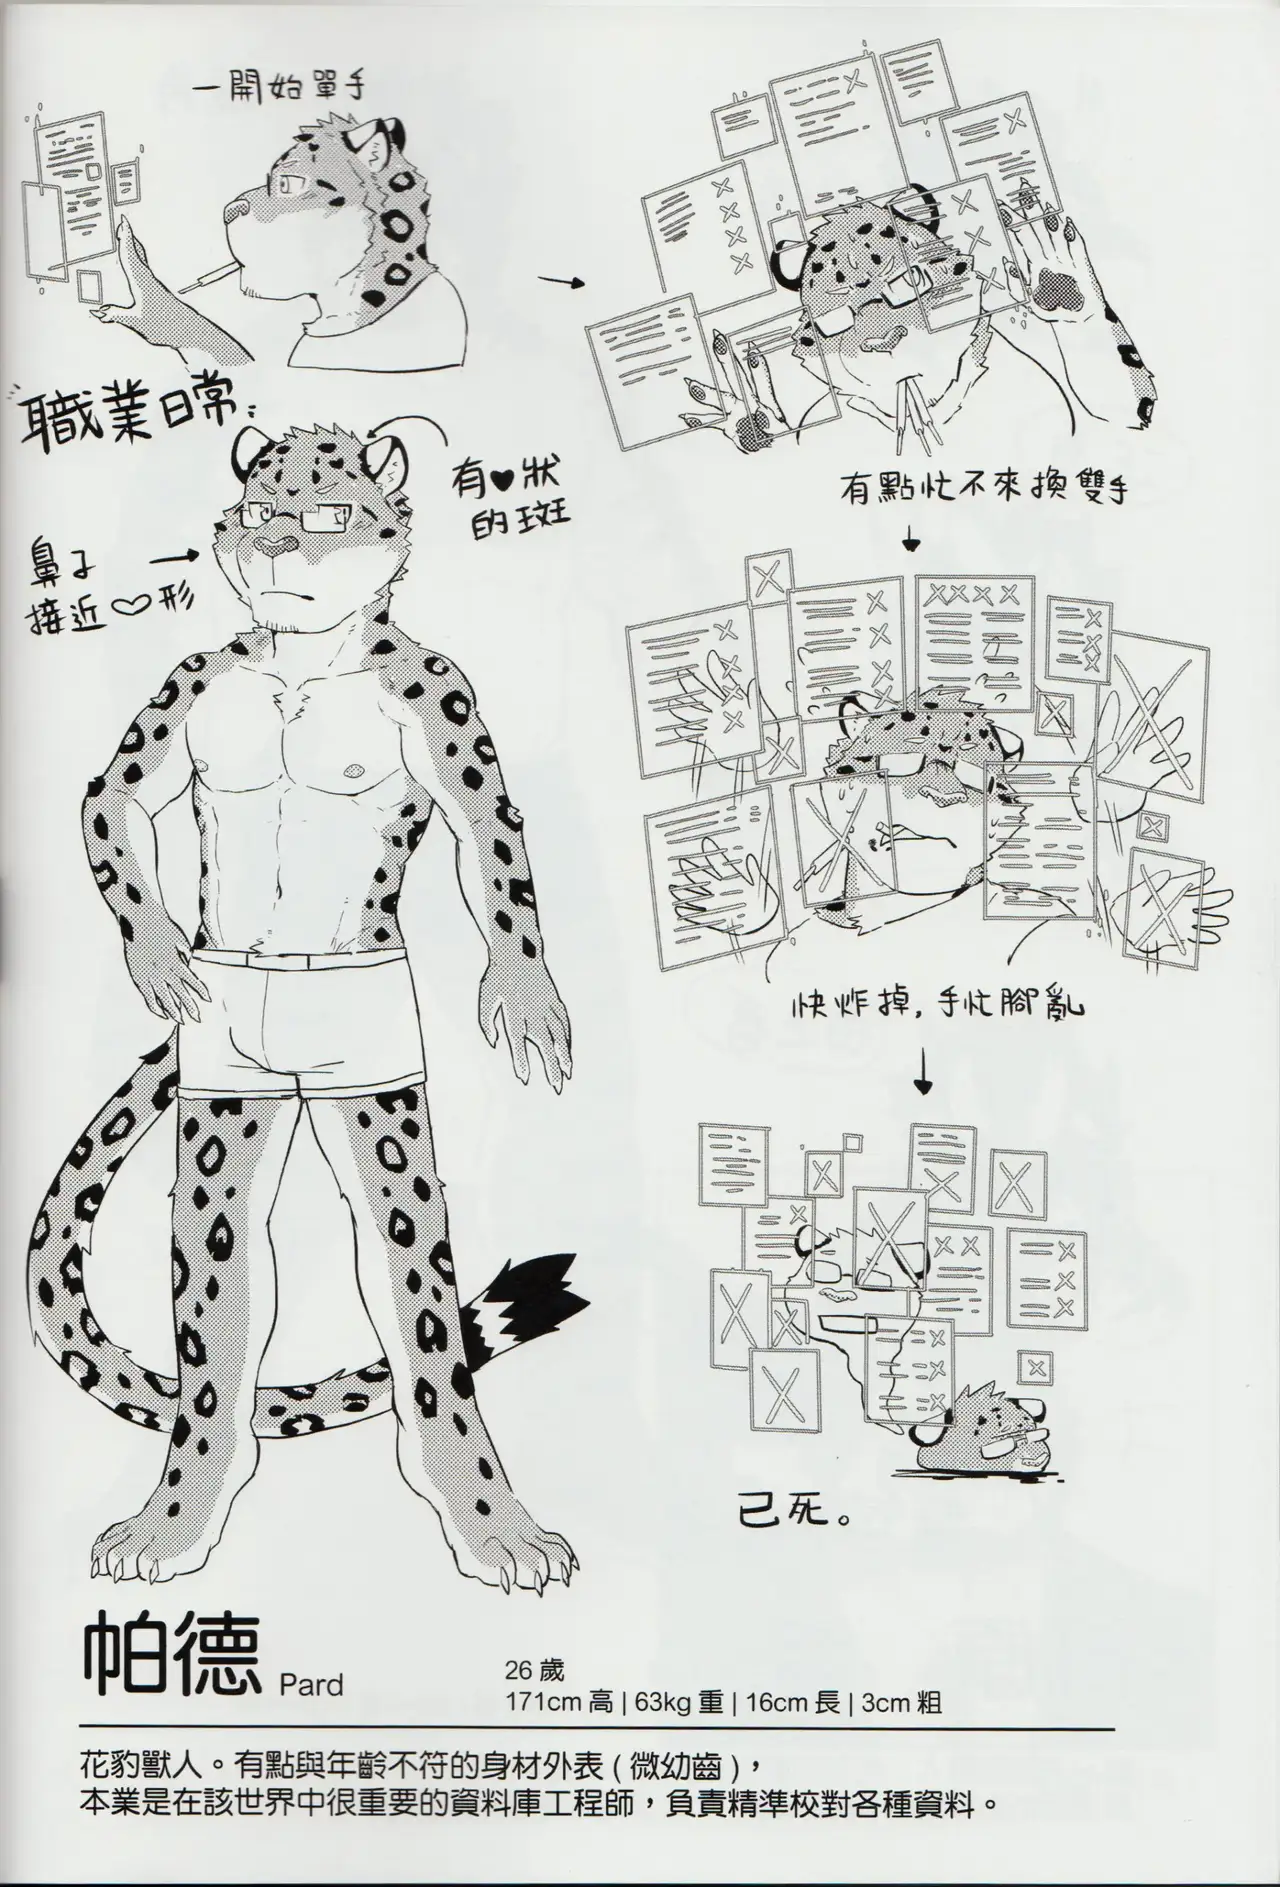 一開始單手
職業日常:
有♥狀
的斑
鼻子
接近♡形
有點忙不來換雙手
快炸掉,手忙腳亂
已死。
帕德 Pard
26 歲
171cm 高 | 63kg 重 | 16cm 長 | 3cm 粗
花豹獸人。有點與年齡不符的身材外表 ( 微幼齒 ),
本業是在該世界中很重要的資料庫工程師,負責精準校對各種資料。